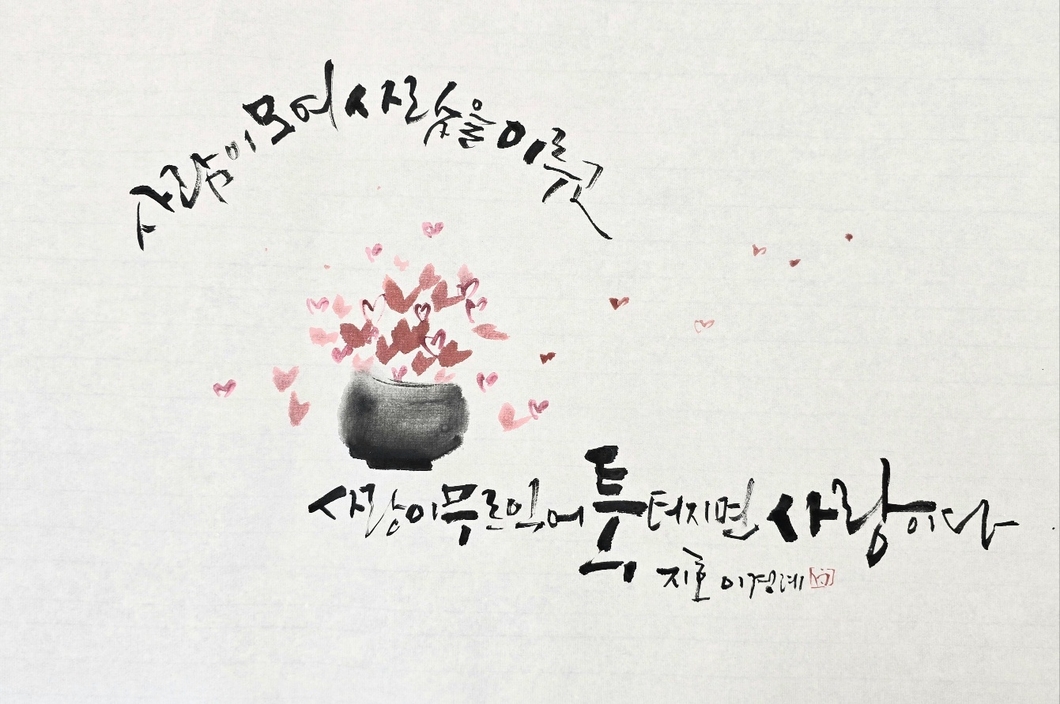 사람이 모여 사람숲을 이루고
사랑이 무르익어 툭 터지면 사랑이다
이경례